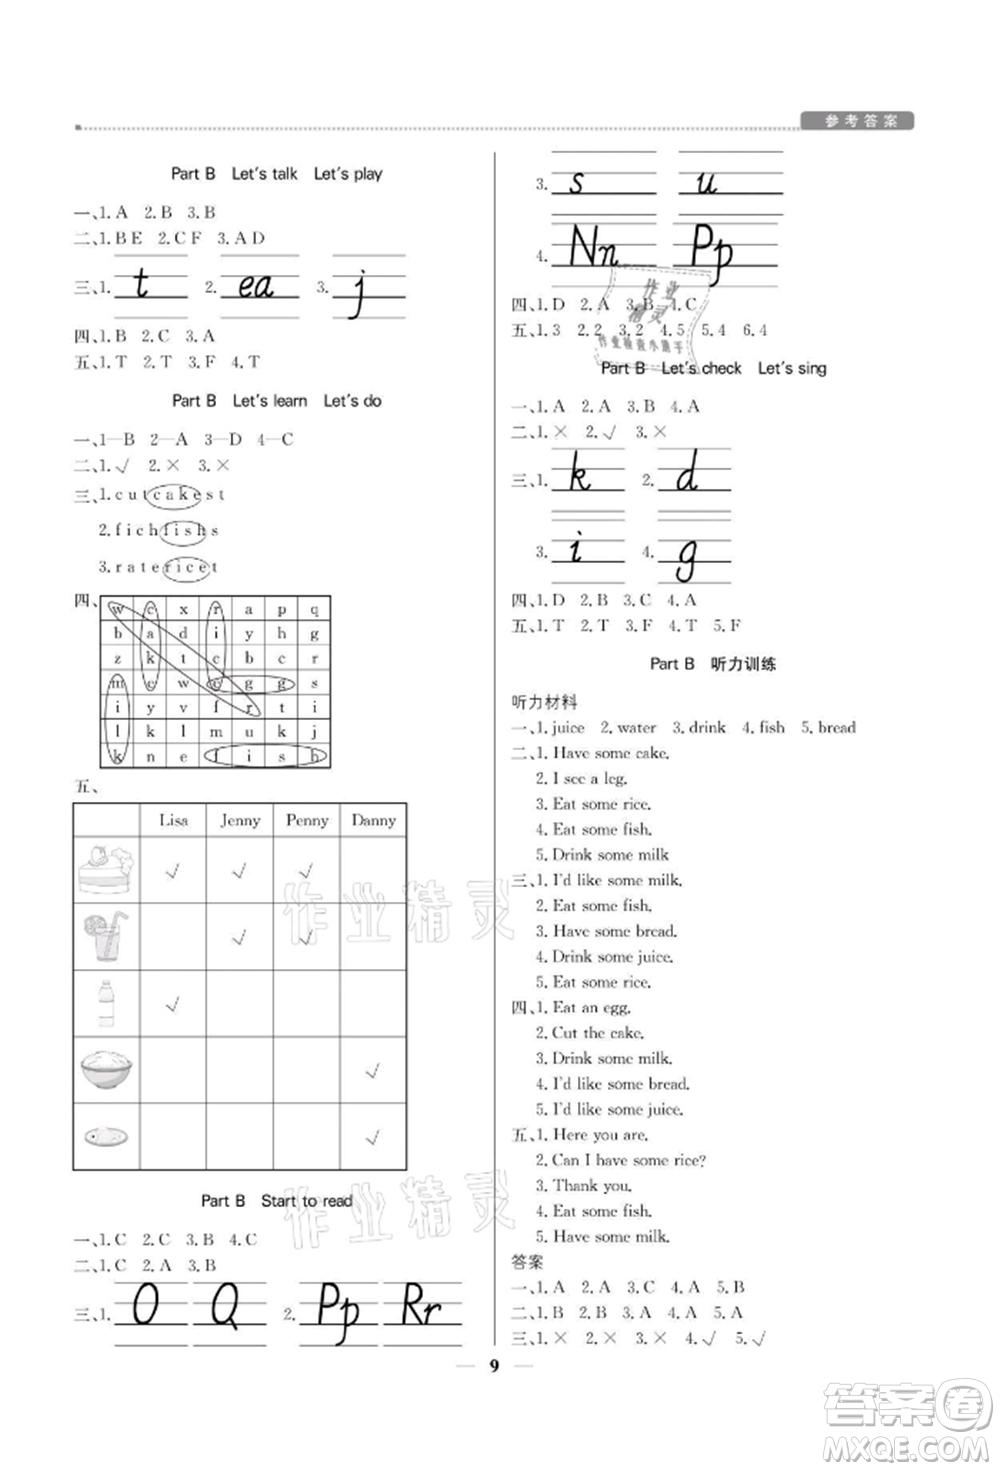 参考答案
Part B Let's talk Let's play
一、1. A 2. B 3. B
二、1. B E 2. C F 3. A D
三、1. t 2. ea 3. j
四、1. B 2. C 3. A
五、1. T 2. T 3. F 4. T
Part B Let's learn Let's do
一、1—B 2—A 3—D 4—C
二、1. √ 2. × 3. ×
三、1. c u t c a k e s t
2. f i c h f i s h s
3. r a t e r i c e t
四、
w c x r a p q
b a d i y h g
z k t c c r t
m e w e g g s
i y v f r t
l c f r m u k n
k n e f i s h
五、
Lisa Jenny Penny Danny
√ √ √
√ √
√
√
√
Part B Start to read
一、1. C 2. C 3. B 4. C
二、1. C 2. A 3. B
三、1. O Q 2. Pp Rr
3. s u
4. Nn Pp
四、1. D 2. A 3. B 4. C
五、1. 3 2. 2 3. 2 4. 5 5. 4 6. 4
Part B Let's check Let's sing
一、1. A 2. A 3. B 4. A
二、1. × 2. √ 3. ×
三、1. k 2. d
3. i 4. g
四、1. D 2. B 3. C 4. A
五、1. T 2. F 3. T 4. T 5. F
Part B 听力训练
听力材料
一、1. juice 2. water 3. drink 4. fish 5. bread
二、1. Have some cake.
2. I see a leg.
3. Eat some rice.
4. Eat some fish.
5. Drink some milk
三、1. I'd like some milk.
2. Eat some fish.
3. Have some bread.
4. Drink some juice.
5. Eat some rice.
四、1. Eat an egg.
2. Cut the cake.
3. Drink some milk.
4. I'd like some bread.
5. I'd like some juice.
五、1. Here you are.
2. Can I have some rice?
3. Thank you.
4. Have some fish.
5. Have some milk.
答案
一、1. A 2. A 3. C 4. A 5. B
二、1. B 2. B 3. B 4. A 5. A
三、1. × 2. × 3. × 4. √ 5. √
9
作业精灵
作业精灵
作业精灵
作业检查小助手
答案圈
MXQE.COM